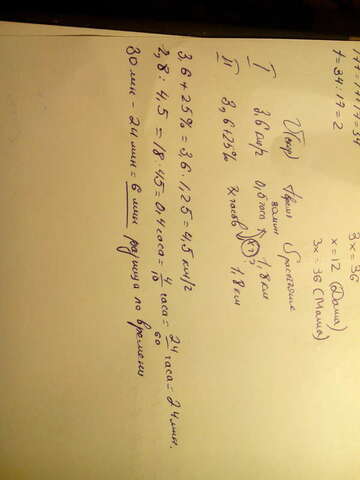 t=34:17=2
3x=36
x=12 (Даша)
3x=36 (Мама)
Vскор время Sрасстояние
I 3,6 км/ч 0,5 часа 30 мин 1,8 км
II 3,6+25% x часов ? 1,8 км
3,6+25%=3,6·1,25=4,5 км/г
1,8:4,5=18:45=0,4 часа=4/10 часа=24/60 часа=24 мин.
30 мин - 24 мин = 6 мин разница по времени